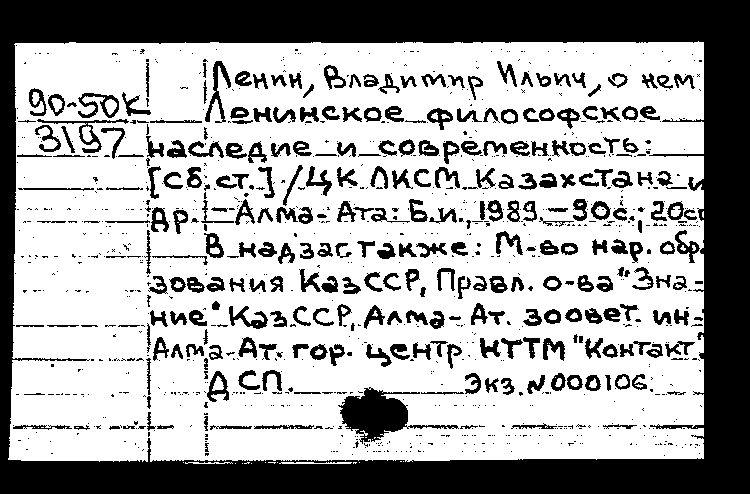 Ленин, Владимир Ильич, о нем
90-50К
3197
Ленинское философское
наследие и современность:
[Сб. ст.] / ЦК ЛКСМ Казахстана и
др. – Алма-Ата: Б.и., 1989. – 90с.; 20см
В надзаг. также: М-во нар. обра-
зования КазССР, Правл. о-ва "Зна-
ние" КазССР, Алма-Ат. зоовет. ин-т
Алма-Ат. гор. центр НТТМ "Контакт".
ДСП. Экз. N000106.